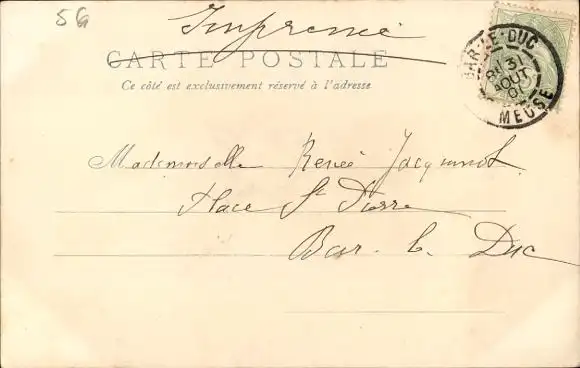 56
Imprimé
CARTE POSTALE
Ce côté est exclusivement réservé à l'adresse
BAR-LE-DUC
31
AOUT
MEUSE
Mademoiselle Renée Jacquinot
Place St Pierre
Bar-le-Duc